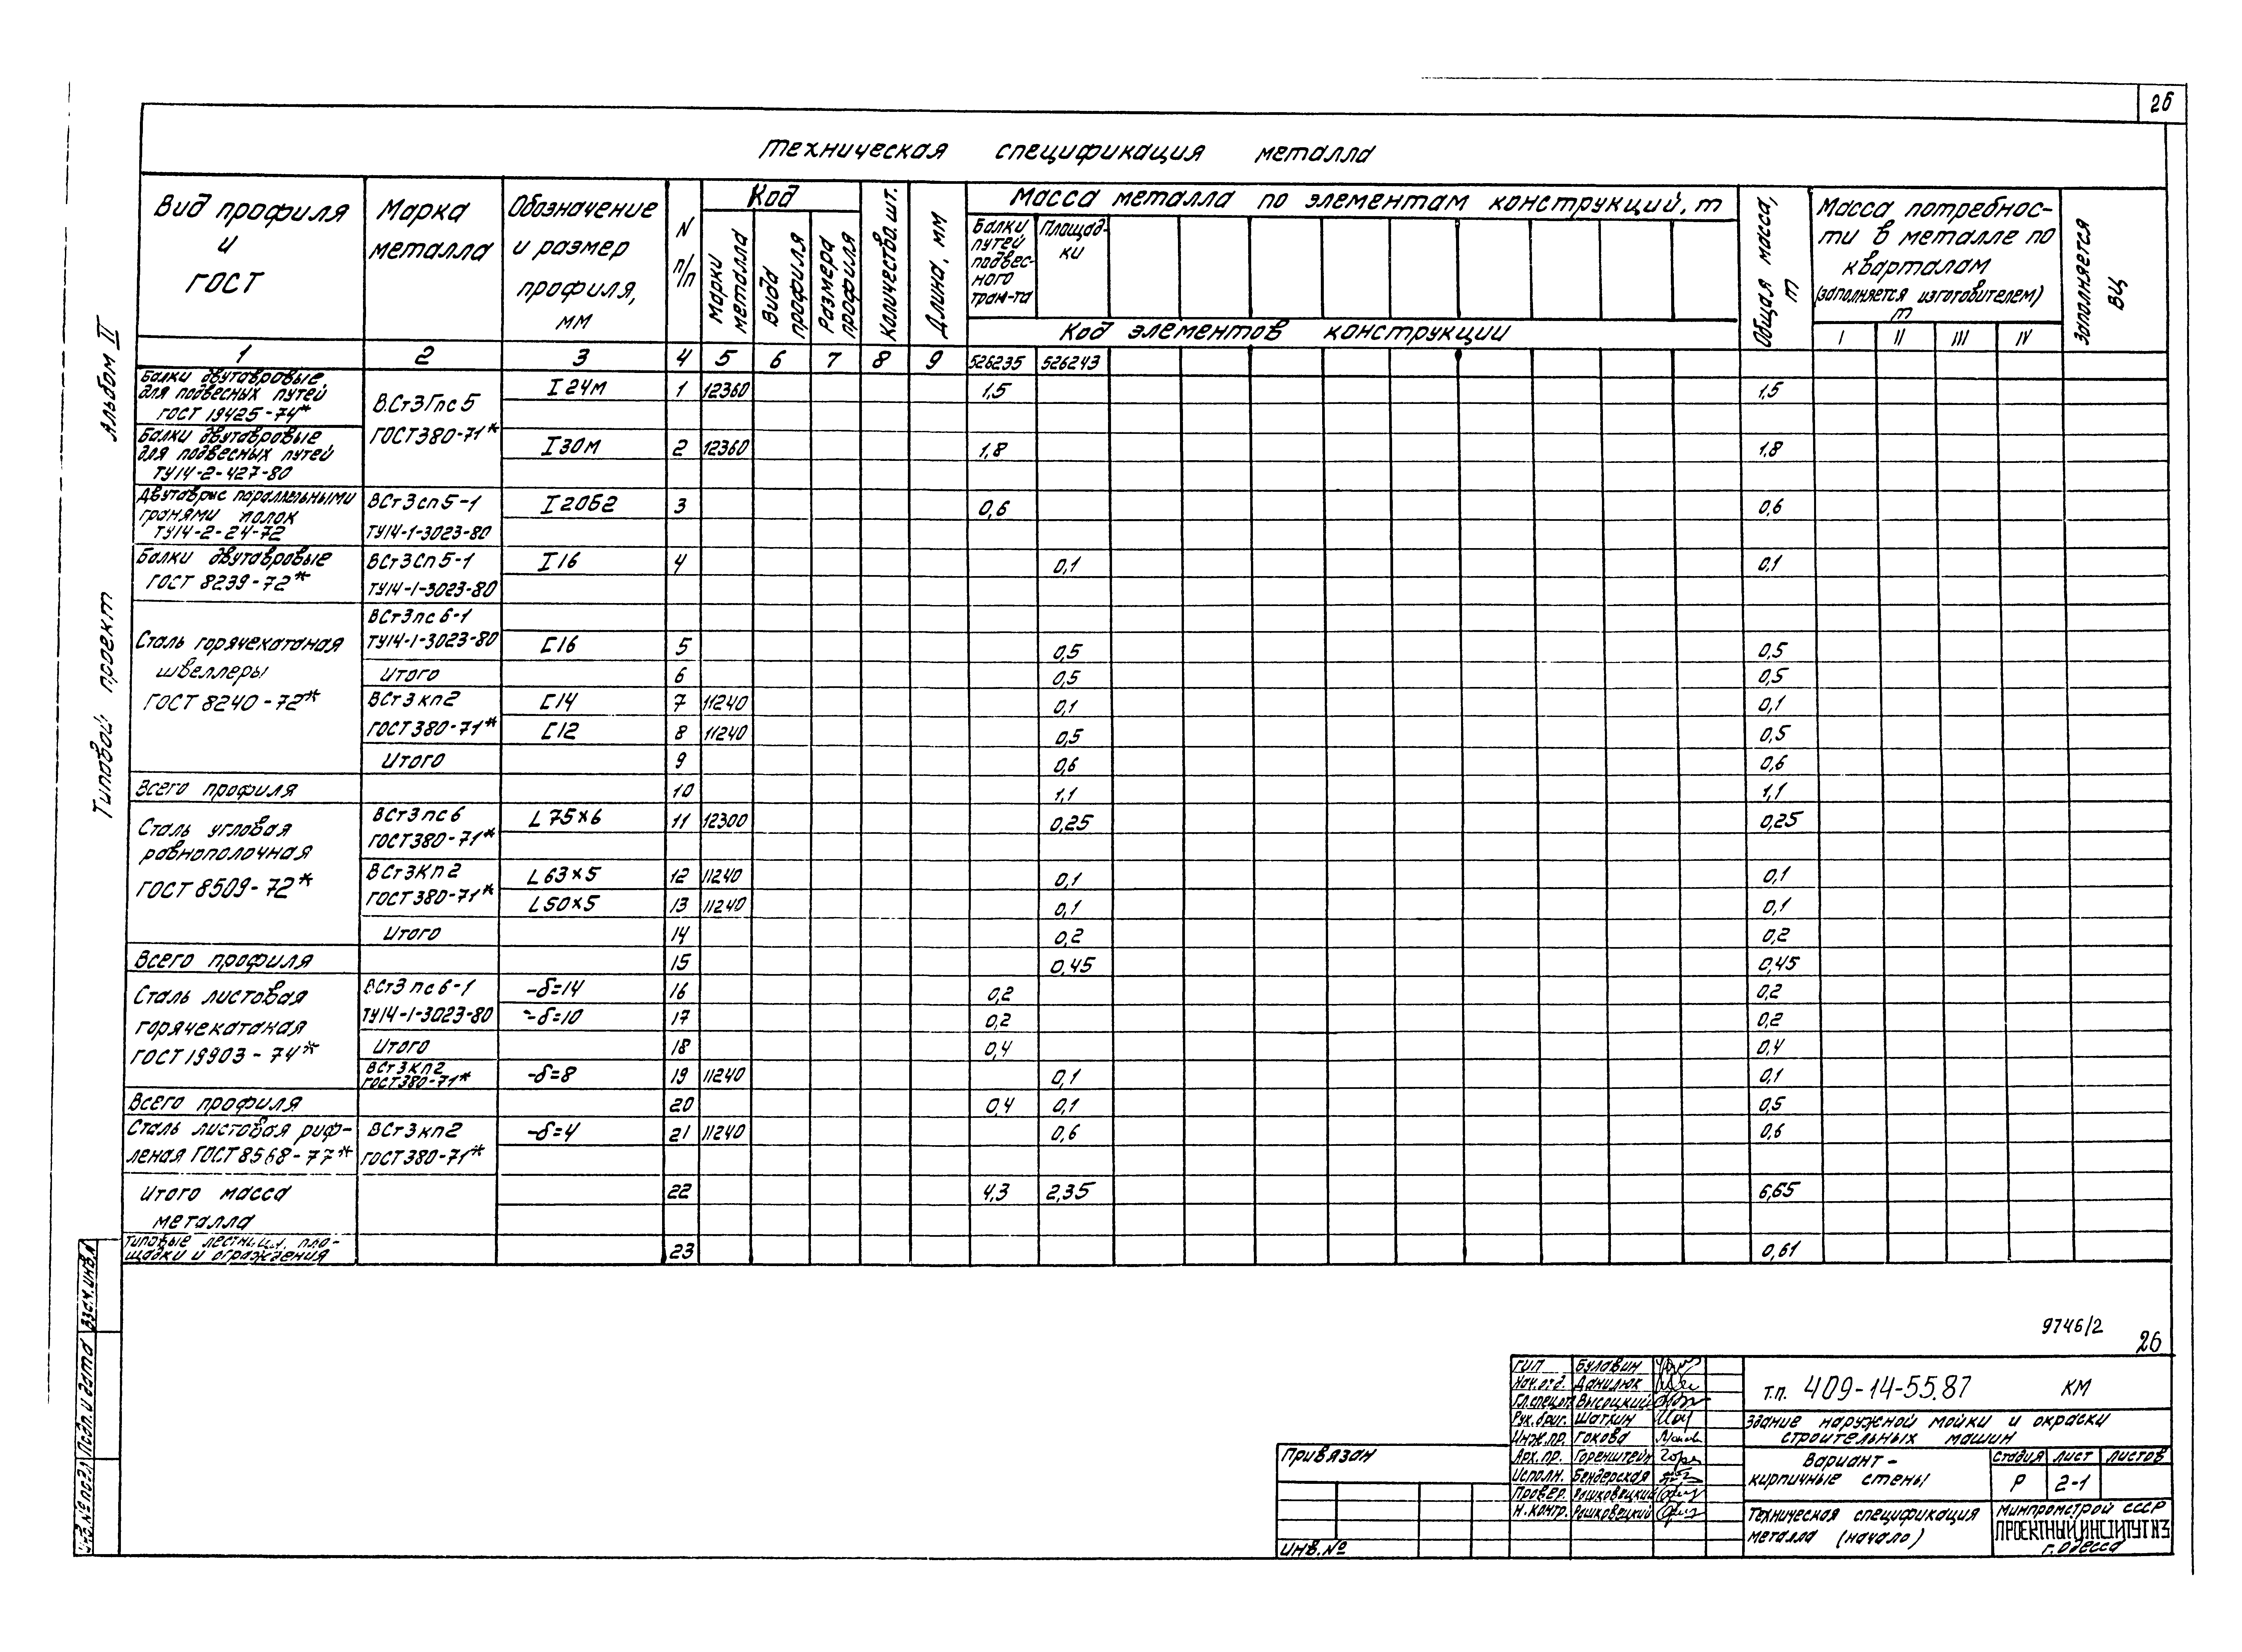 26
Техническая спецификация металла
Вид профиля и ГОСТ
Марка металла
Обозначение и размер профиля, мм
N п/п
Код
Марки металла
Вида профиля
Размера профиля
Количество, шт.
Длина, мм
Масса металла по элементам конструкций, т
Балки путей подвесного тран-та
Площадки
Код элементов конструкции
Общая масса, т
Масса потребности в металле по кварталам (заполняется изготовителем) т
I II III IV
Заполняется ВЦ
1 2 3 4 5 6 7 8 9 526235 526243
Балки двутавровые для подвесных путей ГОСТ 19425-74* ВСт3Гпс5 ГОСТ380-71* I 24М 1 12360 1,5 1,5
Балки двутавровые для подвесных путей ТУ14-2-427-80 I 30М 2 12360 1,8 1,8
Двутавры с параллельными гранями полок ТУ14-2-24-72 ВСт3сп5-1 ТУ14-1-3023-80 I 20Б2 3 0,6 0,6
Балки двутавровые ГОСТ 8239-72* ВСт3Сп5-1 ТУ14-1-3023-80 I 16 4 0,1 0,1
Сталь горячекатаная швеллеры ГОСТ 8240-72* ВСт3пс6-1 ТУ14-1-3023-80 [16 5 0,5 0,5
Итого 6 0,5 0,5
ВСт3кп2 [14 7 11240 0,1 0,1
ГОСТ380-71* [12 8 11240 0,5 0,5
Итого 9 0,6 0,6
Всего профиля 10 1,1 1,1
Сталь угловая равнополочная ГОСТ 8509-72* ВСт3пс6 ГОСТ380-71* L 75×6 11 12300 0,25 0,25
ВСт3Кп2 L 63×5 12 11240 0,1 0,1
ГОСТ380-71* L 50×5 13 11240 0,1 0,1
Итого 14 0,2 0,2
Всего профиля 15 0,45 0,45
Сталь листовая горячекатаная ГОСТ 19903-74* ВСт3пс6-1 -δ=14 16 0,2 0,2
ТУ14-1-3023-80 -δ=10 17 0,2 0,2
Итого 18 0,4 0,4
ВСт3Кп2 ГОСТ380-71* -δ=8 19 11240 0,1 0,1
Всего профиля 20 0,4 0,1 0,5
Сталь листовая рифленая ГОСТ 8568-77* ВСт3кп2 ГОСТ380-71* -δ=4 21 11240 0,6 0,6
Итого масса металла 22 4,3 2,35 6,65
Типовые лестницы, площадки и ограждения 23 0,61
Альбом II
Типовой проект
Взам.инв.№
Подп. и дата
Инв.№ подл
9746/2
26
ГИП Булавин
Нач.отд. Данилюк
Гл.спец.от. Высоцкий
Рук.бриг. Шаткин
Инж.пр. Гокова
Арх.пр. Горенштейн
Исполн. Бендерская
Провер. Рашковецкий
Н.контр. Рашковецкий
Т.п. 409-14-55.87 КМ
Здание наружной мойки и окраски
строительных машин
Вариант -
кирпичные стены
Стадия Лист Листов
Р 2-1
Техническая спецификация
металла (начало)
Минпромстрой СССР
ПРОЕКТНЫЙ ИНСТИТУТ №3
г. Одесса
Привязан
Инв.№